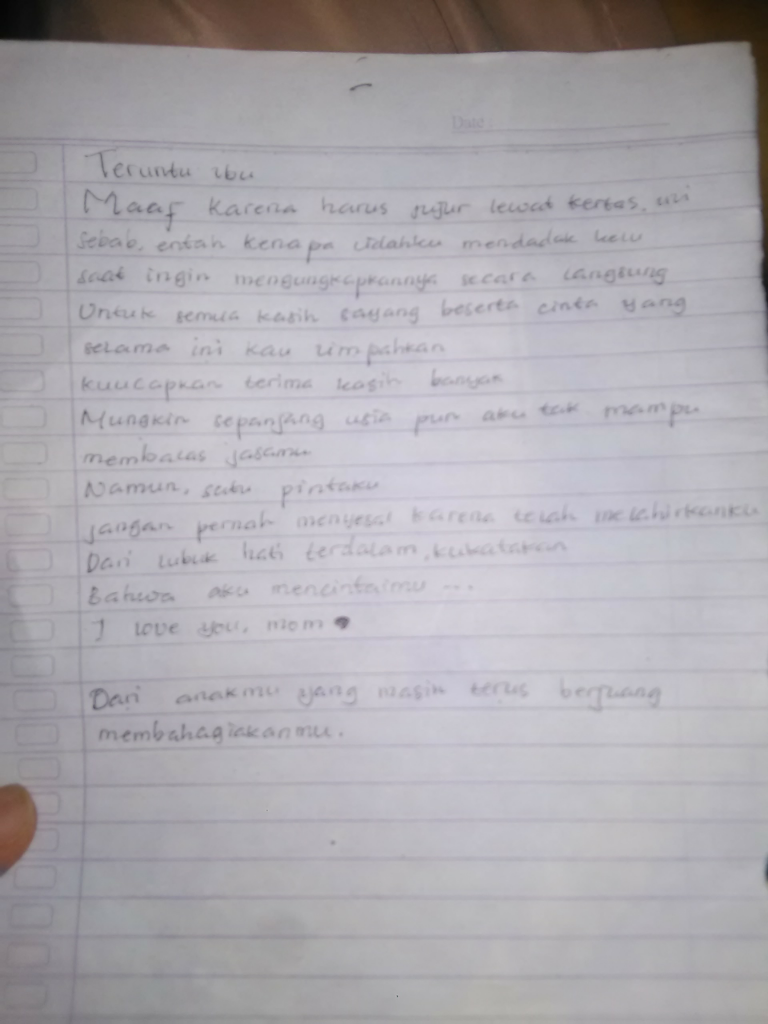 Date
Teruntu ibu
Maaf karena harus jujur lewat kertas. ini
Sebab, entah kenapa lidahku mendadak kelu
saat ingin mengungkapkannya secara langsung
Untuk semua kasih sayang beserta cinta yang
selama ini kau limpahkan
kuucapkan terima kasih banyak
Mungkin sepanjang usia pun aku tak mampu
membalas jasamu
Namun, satu pintaku
jangan pernah menyesal karena telah melahirkanku
Dari lubuk hati terdalam, kukatakan
Bahwa aku mencintaimu ...
I love you, mom
Dari anakmu yang masih terus berjuang
membahagiakanmu.